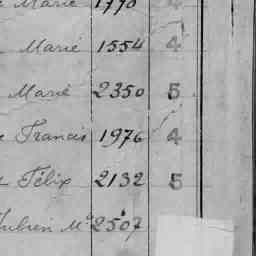 Marie 1770
Marié 1554 4
Marié 2350 5
Francis 1976 4
Félix 2132 5
Julien Mce 2507